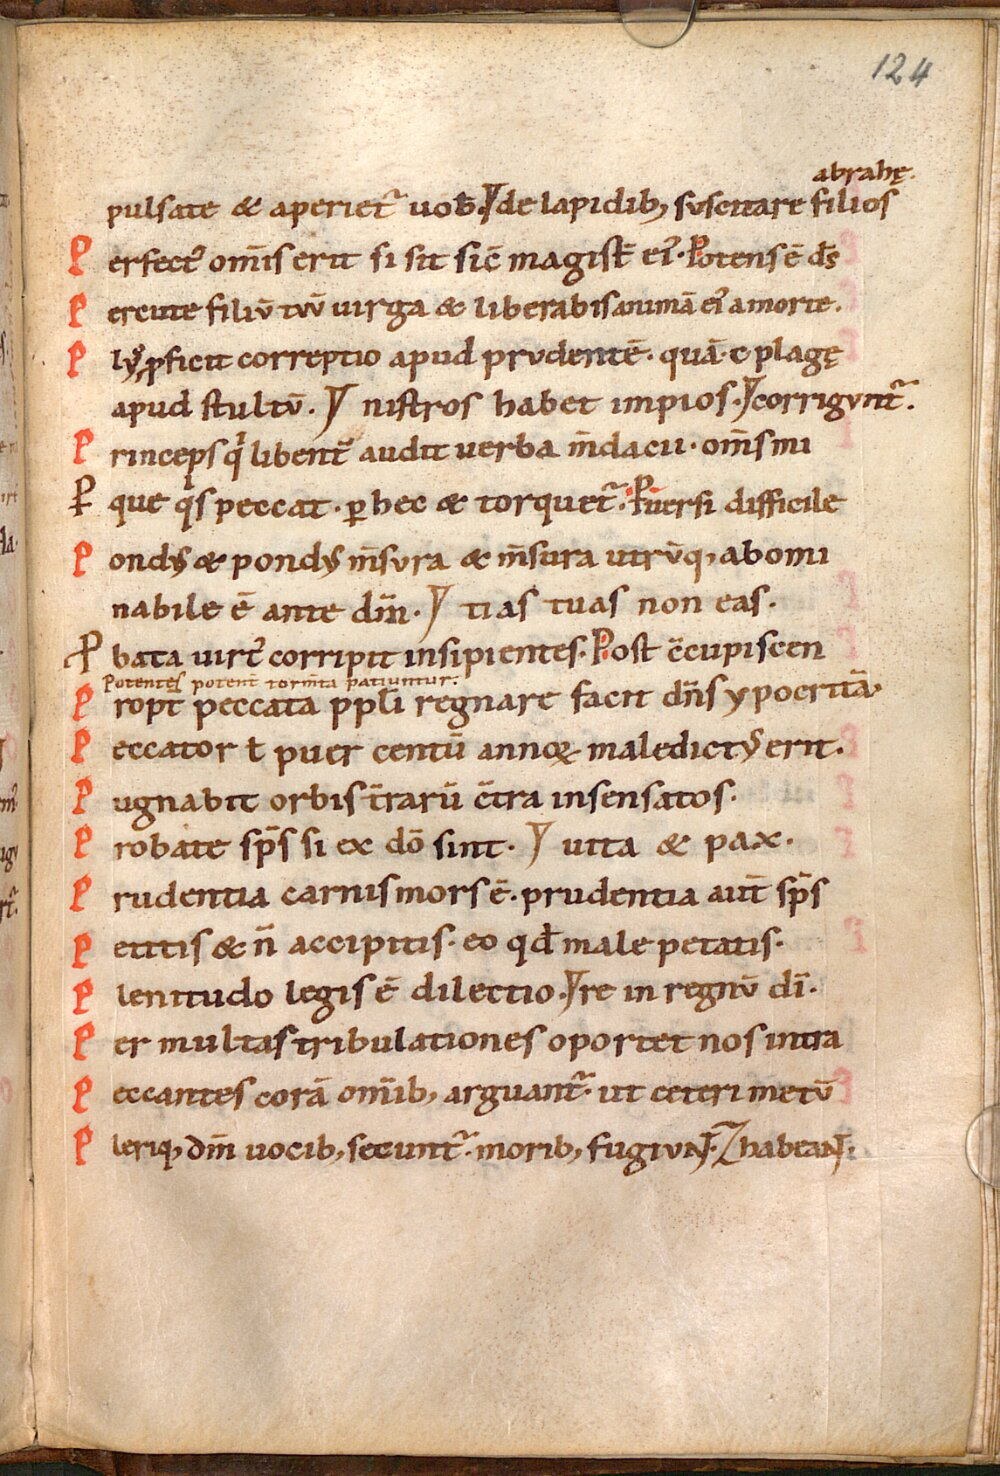 124
abrahę.
pulsate & aperiet᷑ uob̄. de lapidib; svscitare filios
Perfect᷑ om̄is erit si sit sic̄ magist̄ ei᷑. Potens ē ds̄
Percute filiv̄ tvv̄ uirga & liberabis animā ei᷑ a morte.
Plꝰ ꝓficit correptio apud prvdentē. quā .c. plagę
apud stultv̄. nistros habet impios. corrigvnt᷑.
Princeps qͥ libent̄ audit uerba m̄dacii. om̄s mi
P que qͥs peccat. ꝑ hec & torquet᷑. P̱uersi difficile
Pondꝰ & pondꝰ m̄svra & m̄sura utrv̄q; abomi
nabile ē ante dm̄. tias tuas non eas.
P bata uirt᷑ corripit insipientes. Post c̄cupiscen
Potentes potent̄ torm̄ta patiuntur.
Propt̄ peccata ppl̄i regnare facit dn̄s ypocritā.
Peccator ł puer centū annoꝝ maledictꝰ erit.
Pugnabit orbis t̄rarū c̄tra insensatos.
Probate sp̄s si ex dō sint. uita & pax.
Prudentia carnis mors ē. prudentia aut̄ sp̄s
Petitis & n̄ accipitis. eo qd̄ male petatis.
Plenitudo legis ē dilectio. re in regnv̄ dī.
Per multas tribulationes oportet nos intra
Peccantes corā om̄ib; arguant᷑. ut ceteri metv̄
Pleriq; dm̄ uocib; secunt᷑. morib; fugivnt. habeant.